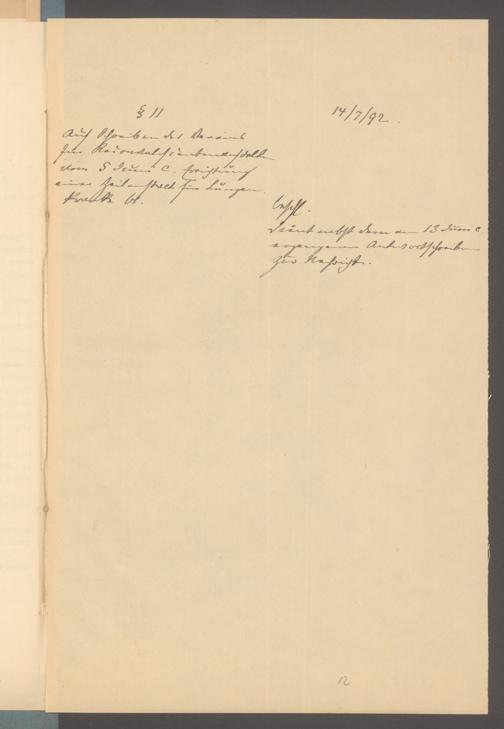 § 11
14/7/92.
Auf Schreiben des Vereins
für Reconvalescentenanstalten
vom 5 Juni c. Errichtung
einer Heilanstalt für Lungen
kranke btr.
Beschl.
Dient nebst dem am 13 Juni c
ergangenen Antwortschreiben
zur Nachricht.
12